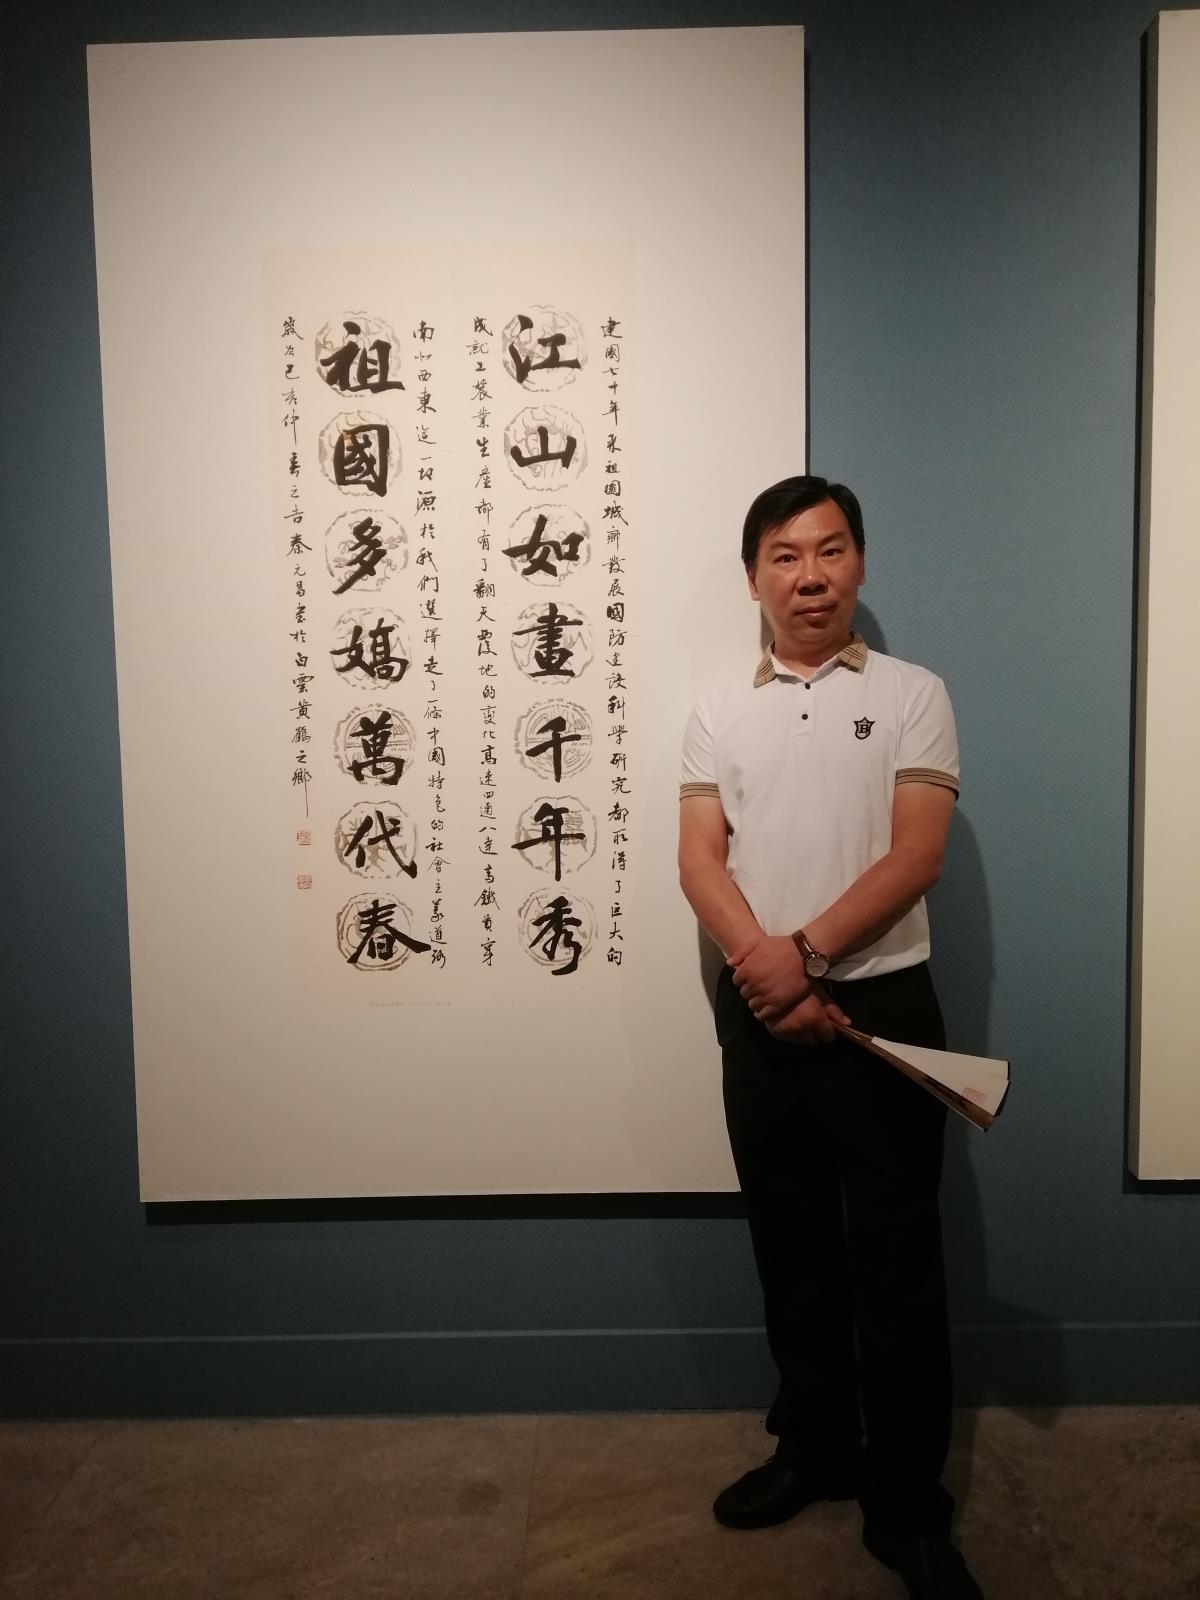 建國七十年來祖國城鄉發展國防建設科學研究都取得了巨大的
江山如畫千年秀
成就工農業生產都有了翻天覆地的變化高速四通八達高鐵貫穿
南北西東這一切源於我們選擇走了一條中國特色的社會主義道路
祖國多嬌萬代春
歲次己亥仲春之吉秦元昌書於白雲黃鶴之鄉